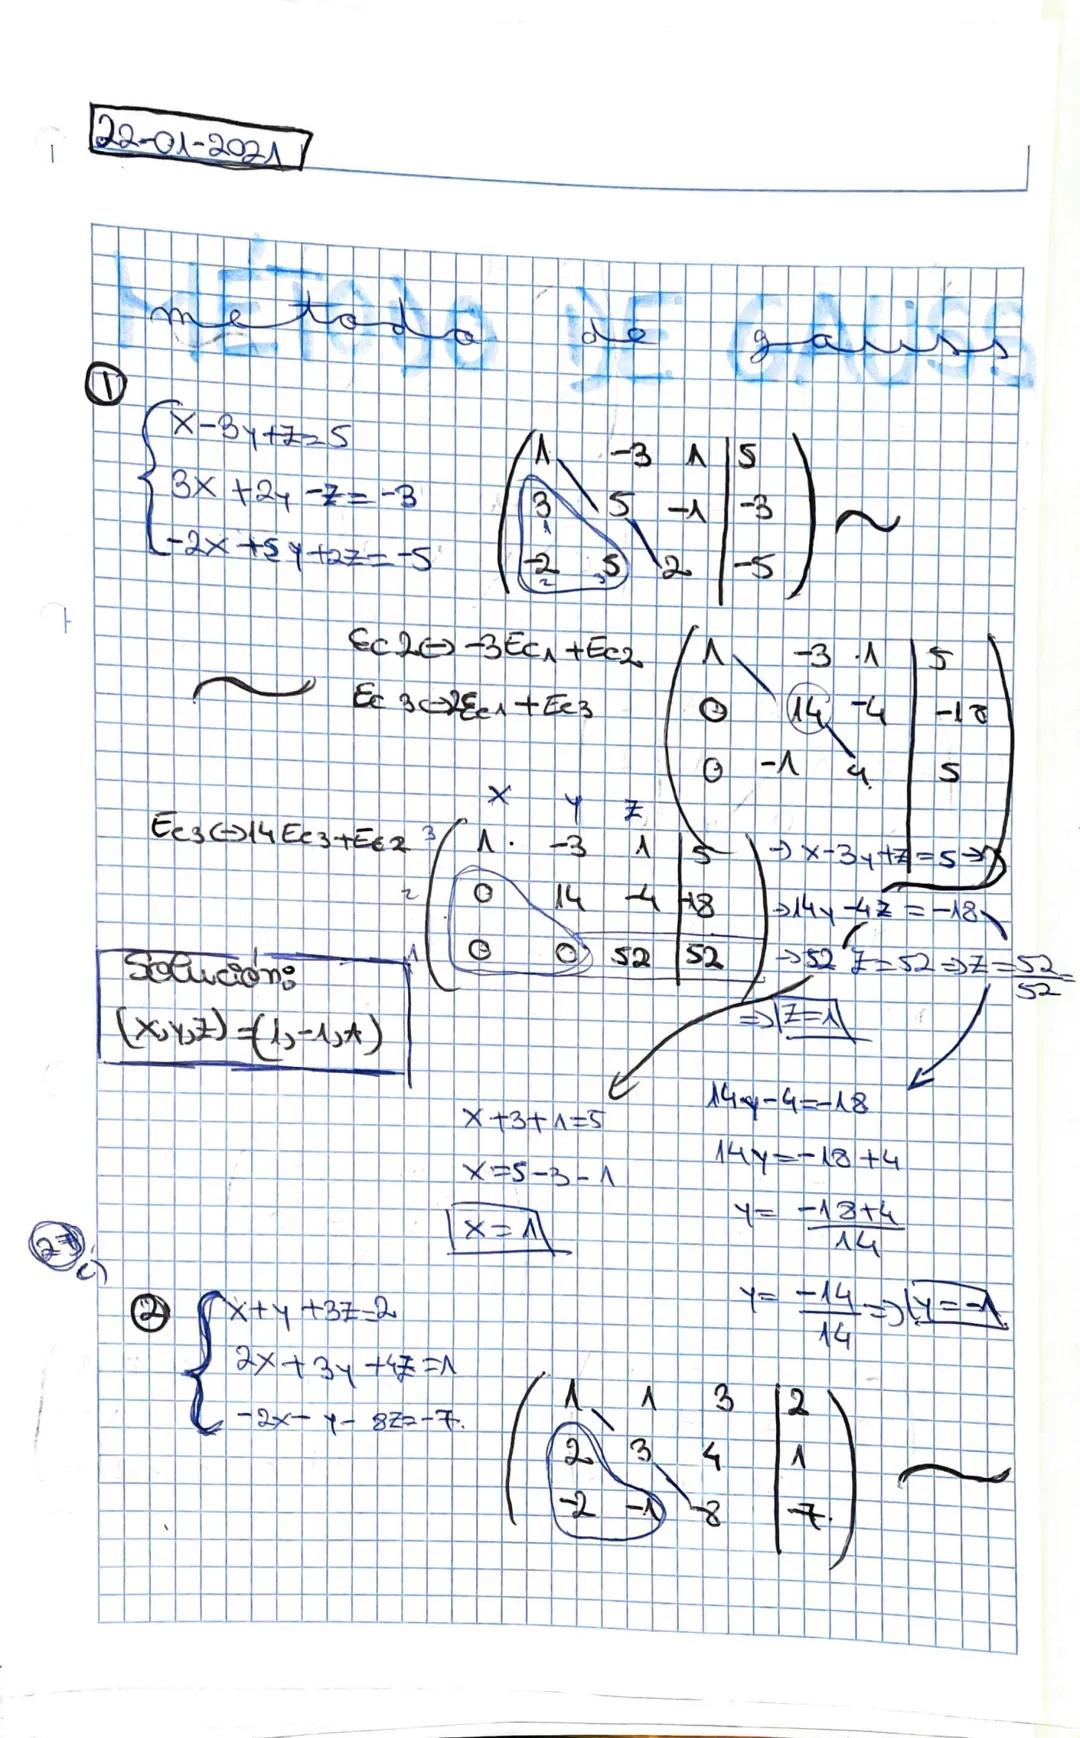 22-01-2021
MÉTODO DE GAUSS
metodo de gauss
1
x-3y+z=5
3x+2y-z=-3
-2x+5y+2z=-5
1 -3 1 | 5
3 5 -1 | -3
-2 5 2 | -5
~
Ec2<->-3Ec1+Ec2
Ec3<->2Ec1+Ec3
~
1 -3 1 | 5
0 14 -4 | -18
0 -1 4 | 5
Ec3<->14Ec3+Ec2
x y z
3 1 -3 1 | 5 -> x-3y+z=5=>
2 0 14 -4 | -18 -> 14y-4z=-18
1 0 0 52 | 52 -> 52z=52=>z=52/52=
=>z=1
Solución:
(x,y,z)=(1,-1,1)
x+3+1=5
x=5-3-1
x=1
14y-4=-18
14y=-18+4
y=-18+4/14
y=-14/14=>y=-1
2
x+y+3z=2
2x+3y+4z=1
-2x-y-8z=-7.
1 1 3 | 2
2 3 4 | 1
-2 -1 -8 | -7.
~